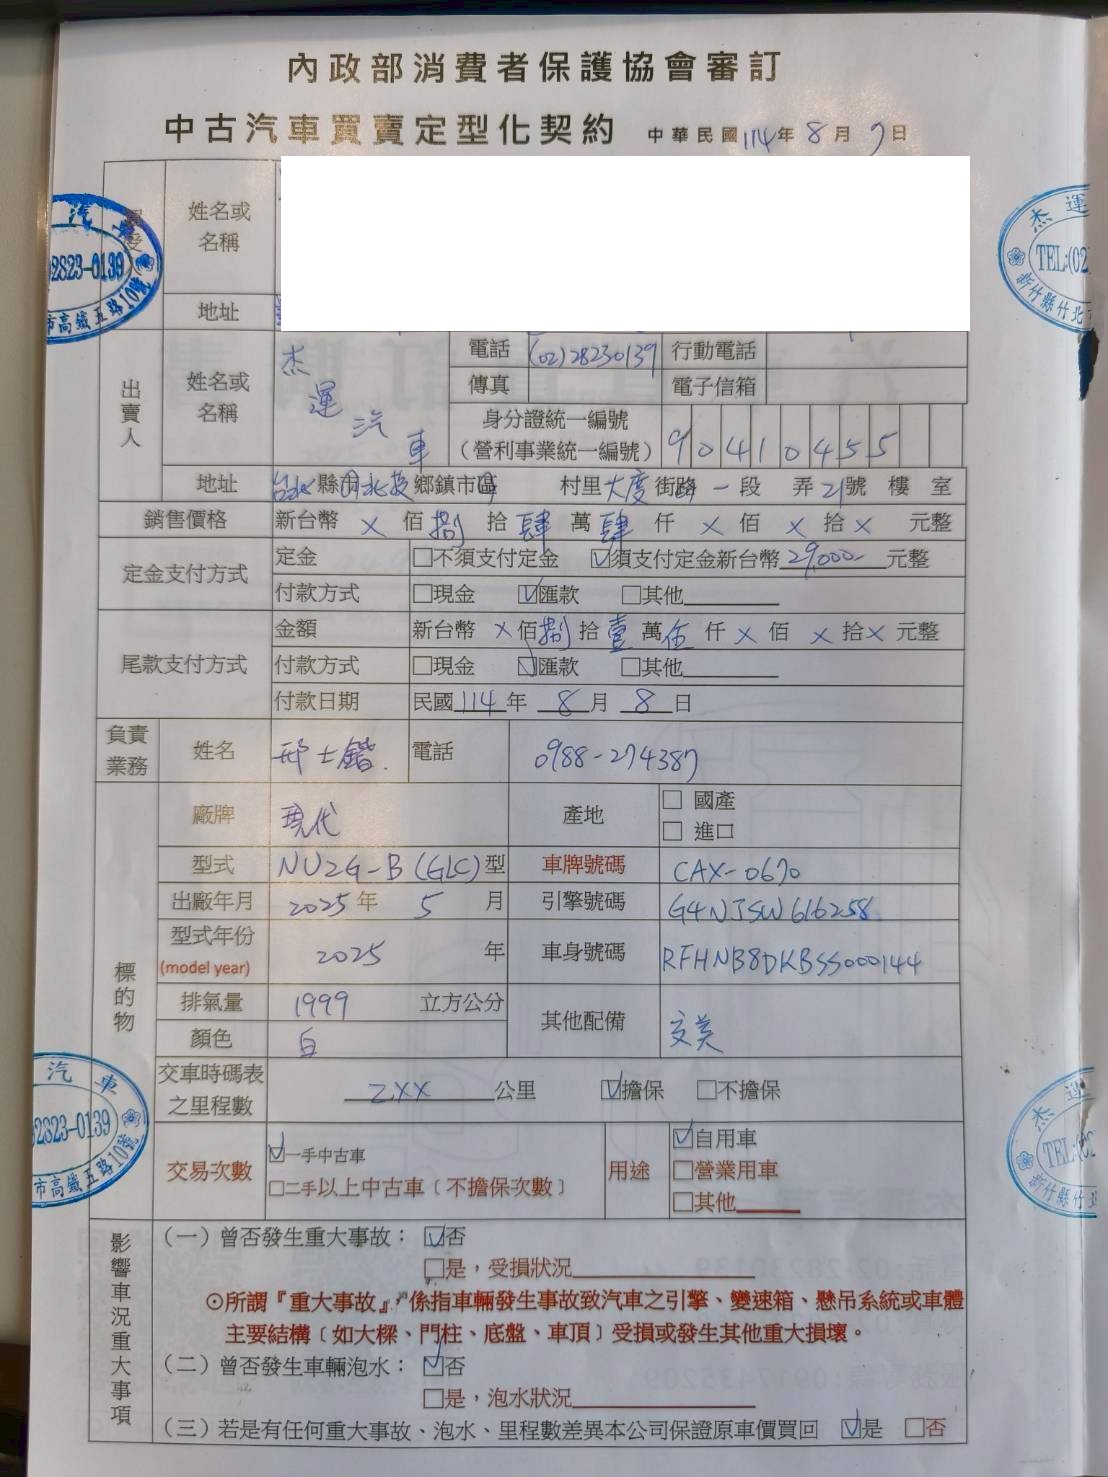 內政部消費者保護協會審訂
中古汽車買賣定型化契約 中華民國114年8月7日
姓名或名稱
地址
出賣人 姓名或名稱 杰運汽車
電話 (02)28230139 行動電話
傳真 電子信箱
身分證統一編號(營利事業統一編號) 90410455
地址 台北縣市北投鄉鎮市區 村里大度街路一段 弄21號 樓 室
銷售價格 新台幣 X 佰捌拾肆萬肆仟 X 佰 X 拾 X 元整
定金支付方式 定金 □不須支付定金 ☑須支付定金新台幣29,000-元整
付款方式 □現金 ☑匯款 □其他
尾款支付方式 金額 新台幣 X 佰捌拾壹萬伍仟 X 佰 X 拾 X 元整
付款方式 □現金 ☑匯款 □其他
付款日期 民國114年8月8日
負責業務 姓名 邢士鍇 電話 0988-274387
標的物 廠牌 現代 產地 □國產 □進口
型式 NU2G-B(GLC)型 車牌號碼 CAX-0670
出廠年月 2025年5月 引擎號碼 G4NJSW616258
型式年份(model year) 2025年 車身號碼 RFHNB8DKBSS000144
排氣量 1999 立方公分 其他配備 交美
顏色 白
交車時碼表之里程數 2XX 公里 ☑擔保 □不擔保
交易次數 ☑一手中古車 □二手以上中古車〔不擔保次數〕
用途 ☑自用車 □營業用車 □其他
影響車況重大事項
(一)曾否發生重大事故：☑否
□是，受損狀況
⊙所謂『重大事故』，係指車輛發生事故致汽車之引擎、變速箱、懸吊系統或車體
主要結構〔如大樑、門柱、底盤、車頂〕受損或發生其他重大損壞。
(二)曾否發生車輛泡水：☑否
□是，泡水狀況
(三)若是有任何重大事故、泡水、里程數差異本公司保證原車價買回 ☑是 □否
汽車
2823-0139
市高鐵五路10號
杰運
TEL:(02
新竹縣竹北
汽車
2823-0139
市高鐵五路10號
杰運
新竹縣竹北